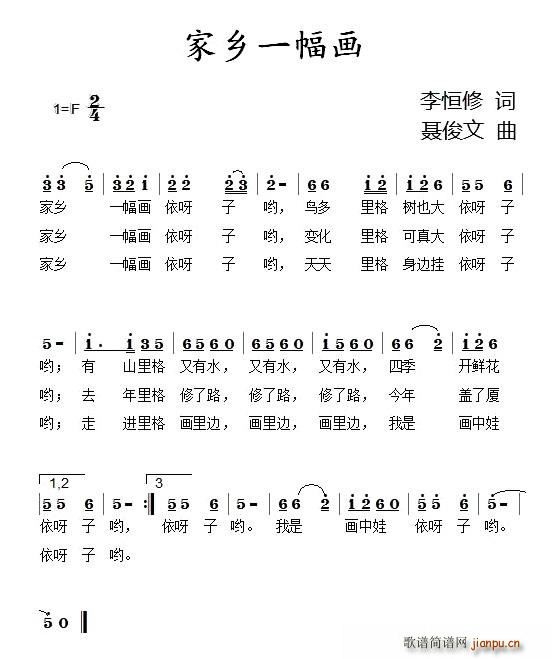 家乡一幅画
1=F 2/4
李恒修 词
聂俊文 曲
3 3 5 | 3 2 1 | 2 2 2 3 | 2 - | 6 6 1 2 | 1 2 6 | 5 5 6 |
家乡 一幅画 依呀 子 哟, 鸟多 里格 树也大 依呀 子
家乡 一幅画 依呀 子 哟, 变化 里格 可真大 依呀 子
家乡 一幅画 依呀 子 哟, 天天 里格 身边挂 依呀 子
5 - | 1 . 1 3 5 | 5 6 5 0 | 5 6 5 0 | 5 6 5 0 | 6 6 2 | 1 2 6
哟; 有 山里格 又有水, 又有水, 又有水, 四季 开鲜花
哟; 去 年里格 修了路, 修了路, 修了路, 今年 盖了厦
哟; 走 进里格 画里边, 画里边, 画里边, 我是 画中娃
1,2 3
5 5 6 | 5 - :| 5 5 6 | 5 - | 6 6 2 | 1 2 6 0 | 5 5 6 | 5 -
依呀 子 哟, 依呀 子 哟。我是 画中娃 依呀 子 哟。
依呀 子 哟。
5 0
歌谱简谱网
jianpu.cn